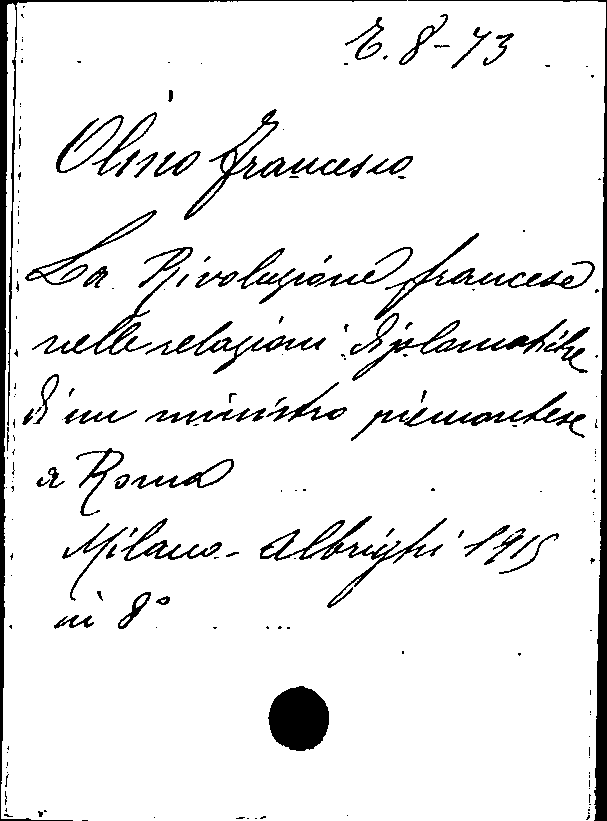 E. 8-73
Olmo Francesco
La Rivoluzione francese
nelle relazioni diplomatiche
di un ministro piemontese
a Roma
Milano - Albrighi 1915
in 8°